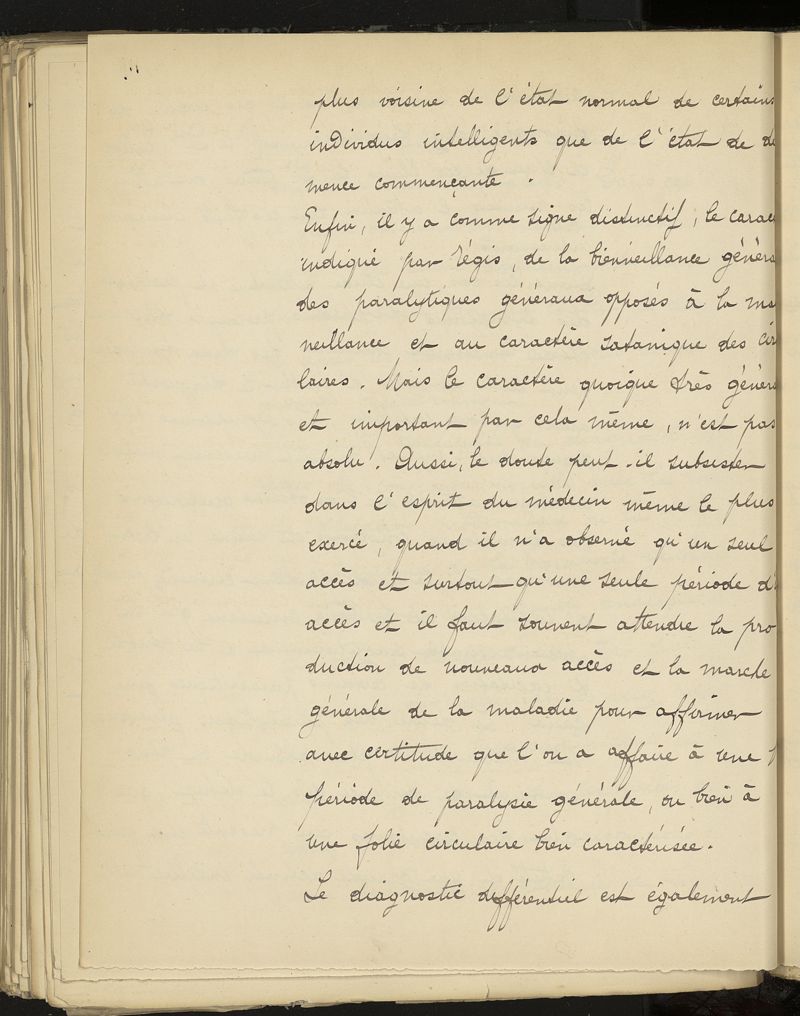 plus voisine de l'état normal de certains
individus intelligents que de l'état de dé
mence commençante .
Enfin, il y a comme signe distinctif, le carac
indiqué par Régis, de la bienveillance généra
des paralytiques généraux opposés à la ma
veillance et au caractère satanique des cir
laires. Mais le caractère quoique très généra
et important par cela même, n'est pas
absolu. Aussi, le doute peut-il subsister
dans l'esprit du médecin même le plus
exercé, quand il n'a observé qu'un seul
accès et surtout qu'une seule période d'
accès et il faut souvent attendre la pro
duction de nouveaux accès et la marche
générale de la maladie pour affirmer
avec certitude que l'on a affaire à une
période de paralysie générale, ou bien à
une folie circulaire bien caractérisée.
Le diagnostic différentiel est également